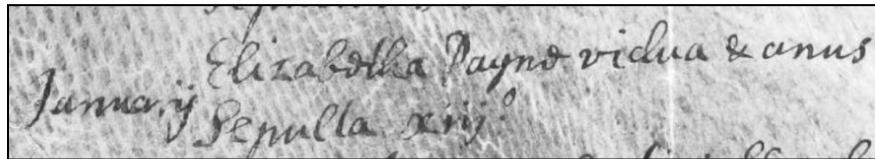 Elizabetha Payne vidua & anus
Januarij Sepulta xiijº